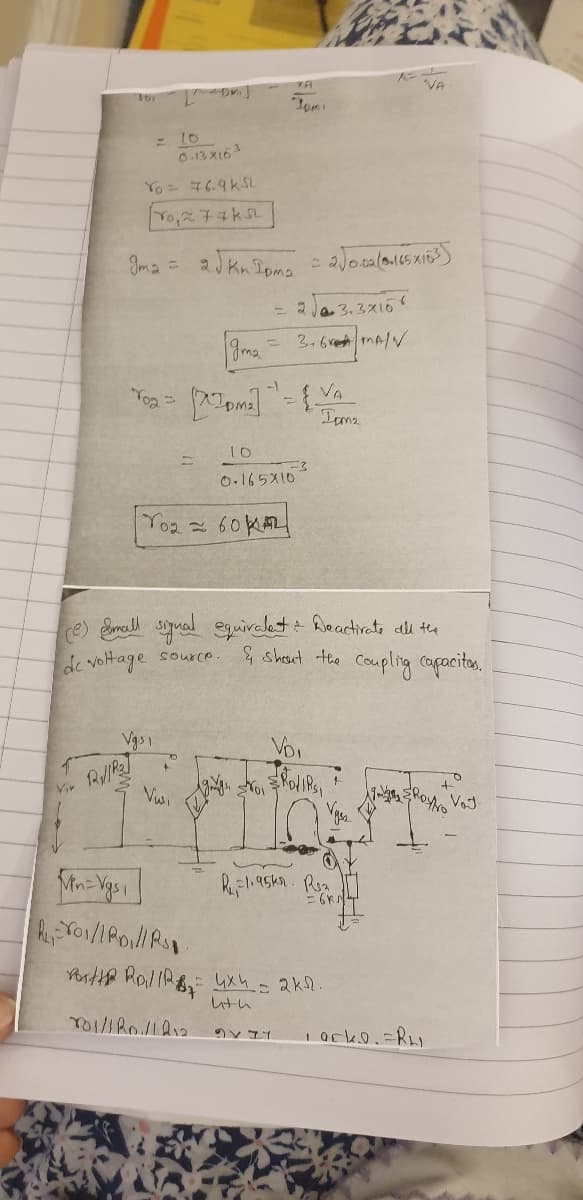 λ = 1/VA
IDM1
= 10 / 0.13×10^-3
ro = 76.9kΩ
ro1 ≈ 77kΩ
gm2 = 2√Kn IDM2 = 2√0.02(0.165×10^-3)
= 2√3.3×10^-6
gm2 = 3.6 mA/V
ro2 = [λIDM2]^-1 = { VA / IDM2
= 10 / 0.165×10^-3
ro2 ≈ 60KΩ
(e) Small signal equivalent : Deactivate all the
dc voltage source. & short the coupling capacitors.
Vgs1 VD1
Vin R1//R2
gmVgs1 ro1 RD//RS1 + Vgs2
+ Vout
Vin=Vgs1
RL1=1.95kΩ. RS2
=6KΩ
RL1=ro1//RD1//RS1
= 4×4 / 4+4 = 2kΩ.
=RL1